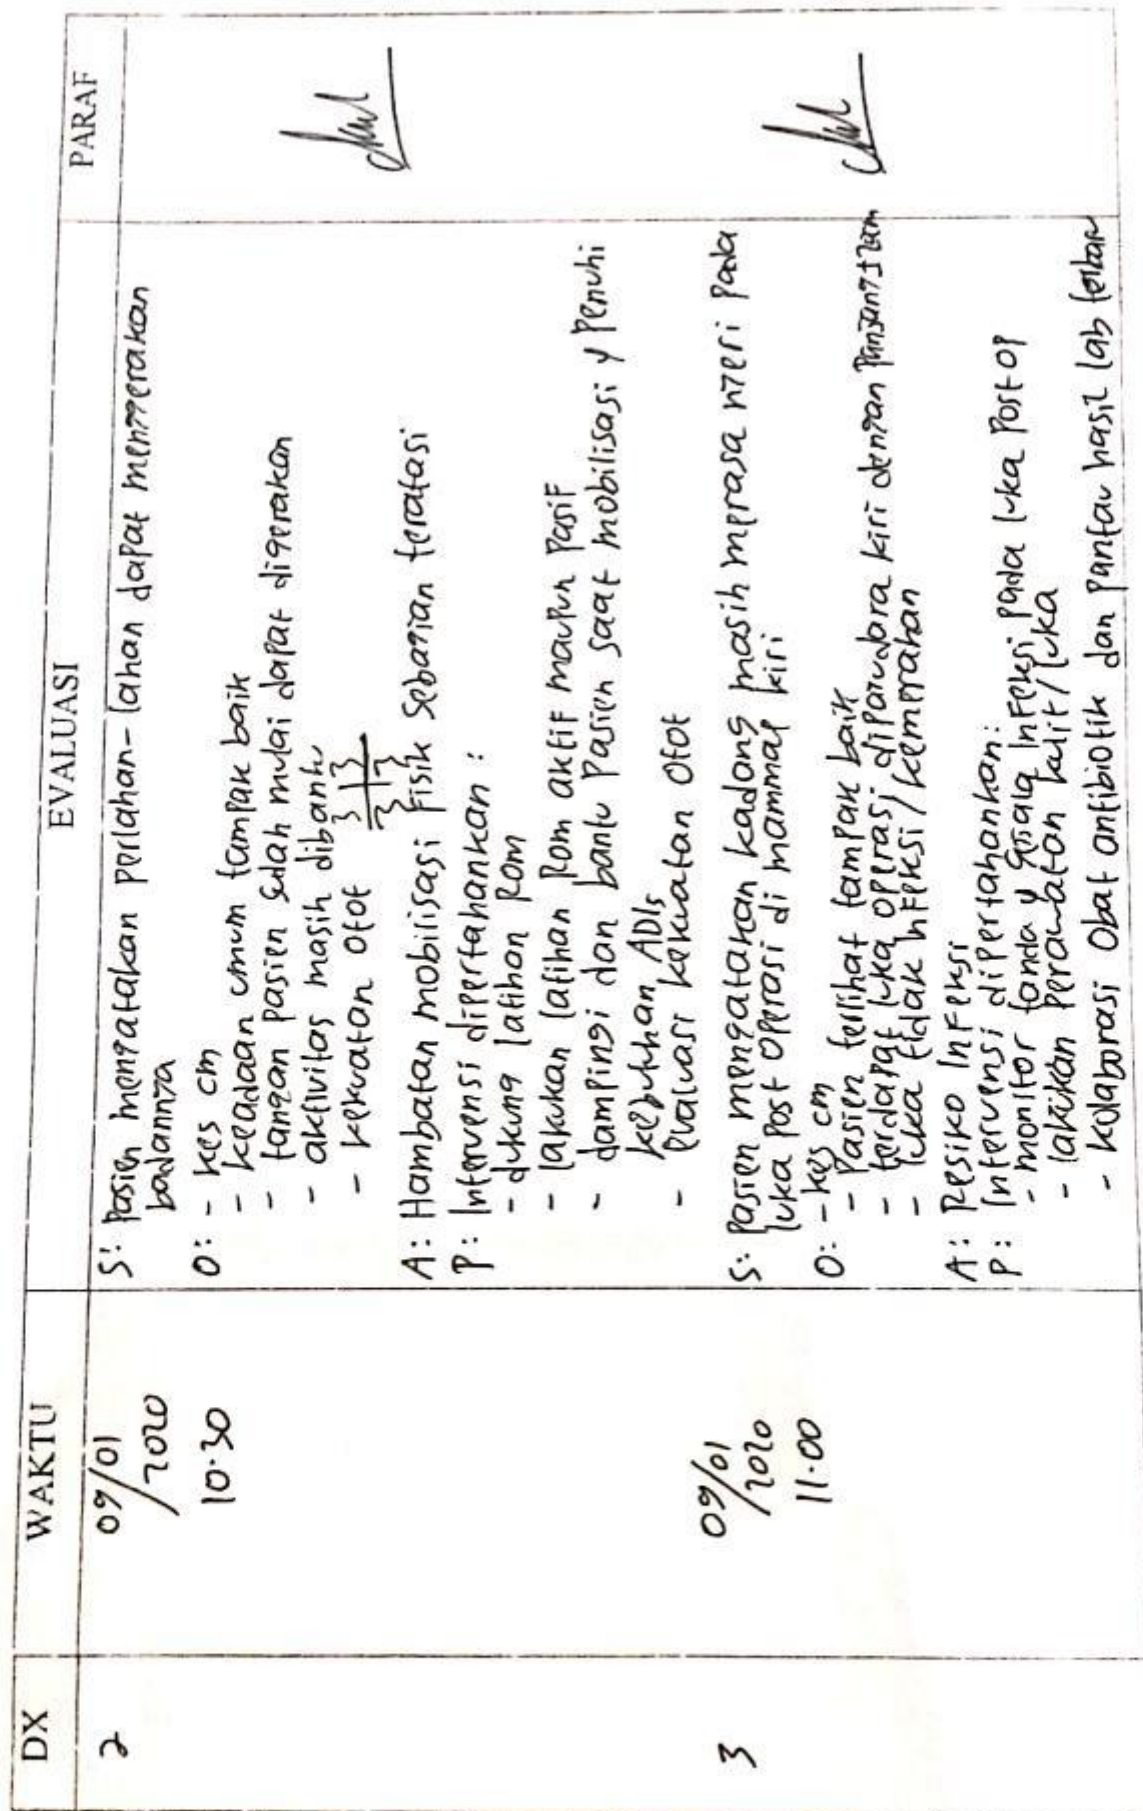 DX WAKTU EVALUASI PARAF
2
09/01
/2020
10.30
S: Pasien mengatakan perlahan-lahan dapat menggerakan
badannya
O: - kes cm
- keadaan umum tampak baik
- tangan pasien sudah mulai dapat digerakan
- aktivitas masih dibantu
- kekuatan otot 3 3
3 3
A: Hambatan mobilisasi fisik sebagian teratasi
P: Intervensi dipertahankan:
- dukung latihan Rom
- lakukan latihan Rom aktif maupun pasif
- dampingi dan bantu pasien saat mobilisasi y penuhi
kebutuhan ADls
- evaluasi kekuatan otot
3
09/01
/2020
11.00
S: pasien mengatakan kadang masih merasa nyeri pada
luka post operasi di mammae kiri
O: - kes cm
- pasien terlihat tampak baik
- terdapat luka operasi dipayudara kiri dengan panjang
- luka tidak infeksi/kemerahan
A: Resiko Infeksi
P: Intervensi dipertahankan:
- monitor tanda y gejala infeksi pada luka post op
- lakukan perawatan kulit/luka
- kolaborasi obat antibiotik dan pantau hasil lab